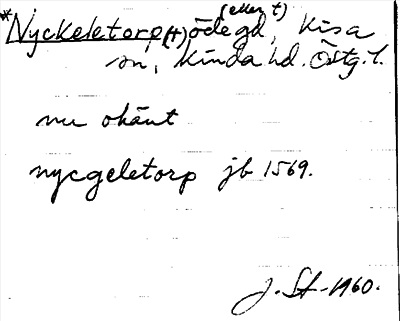 *Nyckeletorp, (t) ödegd, (eller t) Kisa
sn, Kinda hd. Östg. l.
nu okänt
nycgeletorp jb 1569.
J. St. 1960.